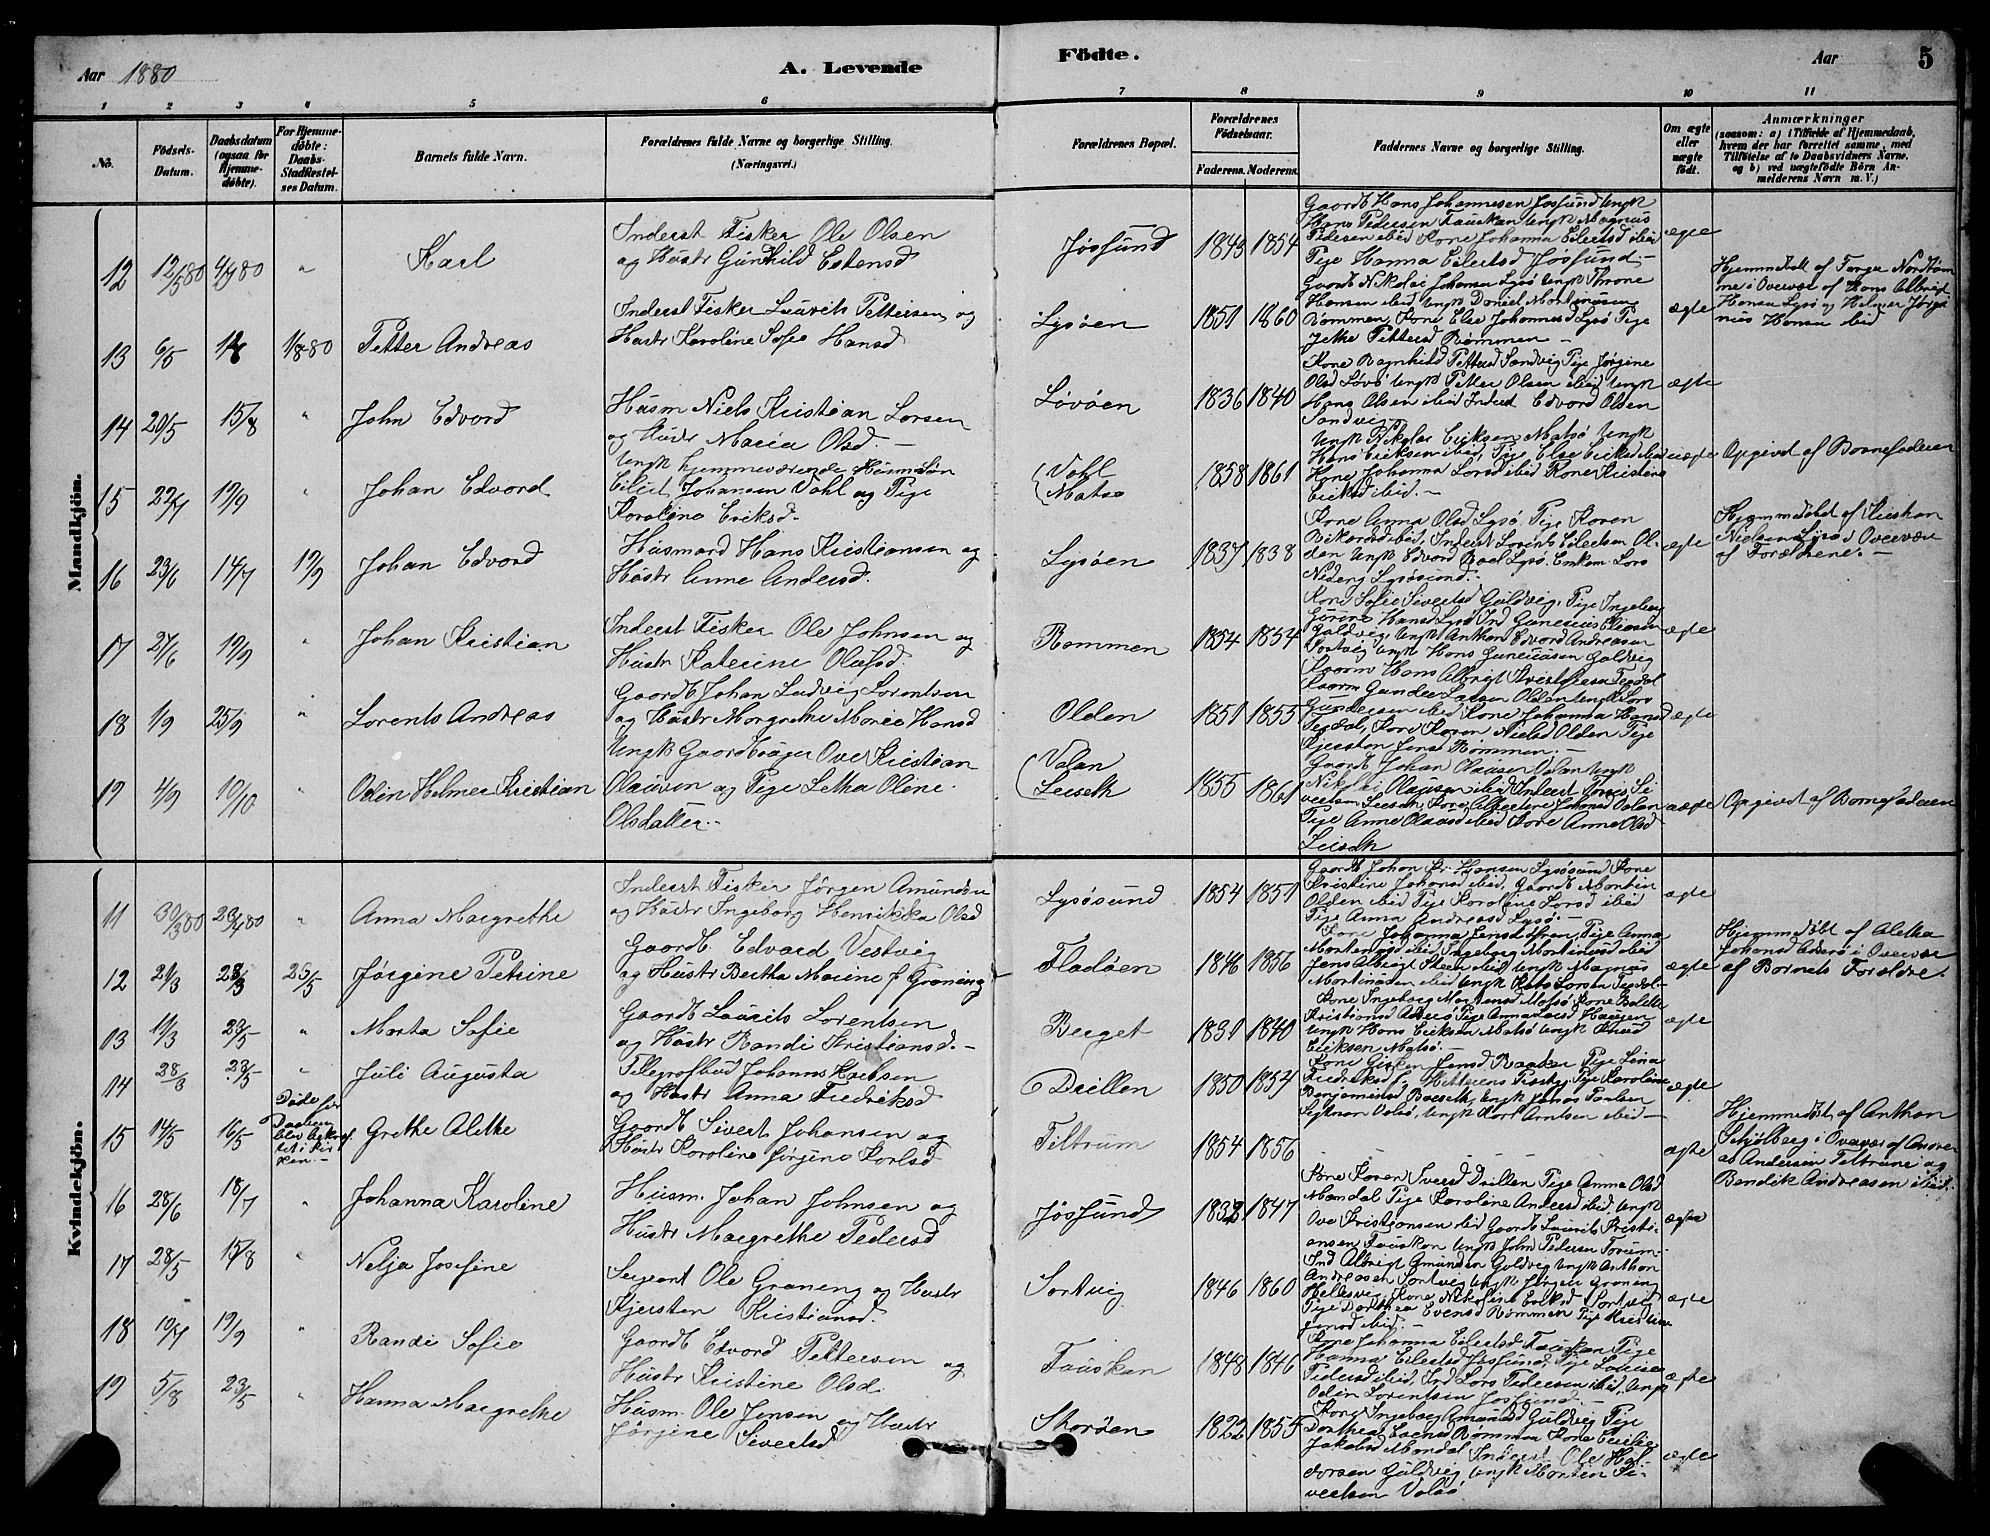 Aar 1880
A. Levende
Födte.
Aar
5
1 2 3 4 5 6 7 8 9 10 11
No.
Födsels-
Datum.
Daabsdatum
(ogsaa for
Hjemme-
döbte).
For Hjemme-
döbte:
Daabs-
Stadfæstel-
ses Datum.
Barnets fulde Navn.
Forældrenes fulde Navne og borgerlige Stilling.
(Næringsvei.)
Forældrenes Bopæl.
Forældrenes
Födselsaar.
Faderens. Moderens.
Faddernes Navne og borgerlige Stilling.
Om ægte
eller
uægte
födt.
Anmærkninger
(saasom: a) i Tilfælde af Hjemmedaab,
hvem der har forrettet samme, med
Tilföielse af to Daabsvidners Navne,
og b) ved uægtefödte Börn An-
melderens Navn m. V.)
Mandkjön.
12 12/5 80 4/7 80 "
Karl
Inderst Fisker Ole Olsen
og Hustr Gunhild Estensd
Jøssund 1843 1854
Gaardb Hans Johannesen Jøssund Ungk
Hans Pedersen Fauskan Ungk Magnus
Pedersen ibid Kone Johanna Eilertsd ibid
Pige Hanna Eilertsd Jøssund. -
ægte
13 6/5 1/8 80
Petter Andreas
Inderst Fisker Laurits Pettersen og
Hustr Karoline Sofie Hansd
Lysøen 1851 1860
Gaardb Nikolai Johansen Lysø Ungk Throne
Hansen ibid Ungk Daniel Mortinusen
Rømmen, Kone Else Johannesd Lysø Pige
Jethe Pettersd Rømmen -
ægte
14 20/5 15/8 "
John Edvard
Husm Niels Kristian Larsen
og Hustr Maria Olsd -
Løvøen 1836 1840
Kone Ragnhild Pettersd Sandvig Pige Jørgine
Olsd Løvø Ungk Petter Olsen ibid Ungk
Hans Olsen ibid Inderst Edvard Olsen
Sandvig
ægte
15 22/7 19/9 "
Johan Edvard
Ungk hjemmeværende Husm Søn
Eilert Johansen Vahl og Pige
Karoline Eriksd.
Vahl
Matsø
1858 1861
Ungk Nikolai Eriksen Matsø Ungk
Hans Eriksen ibid, Pige Else Eriksd ibid
Kone Johanna Larsd ibid Kone Kristine
Eriksd ibid. -
uægte
Opgivet af Barnefaderen
16 23/6 14/7 19/9
Johan Edvard
Husmand Hans Kristiansen og
Hustr Anne Andersd.
Lysøen 1837 1838
Kone Anna Olsd Lysø Pige Karen
Rikardsd ibid, Inderst Lorents Eilertsen Ol-
den Ungk Edvard Roel Lysø. Enkem. Lars
Lysøsund.
ægte
Hjemmedøbt af Kristian
Nielsen Lysø i Overvær
af Forældrene. -
17 27/6 19/9
Johan Kristian
Inderst Fisker Ole Johnsen og
Hustr Katerine Olufsd.
Rømmen 1854 1854
Kone Sofie Sivertsd Guldvig, Pige Ingeborg
Gurine Hansd Lysø Ind Guneius Eliasen
Guldvig Ungk Anthon Edvard Andreasen
Sortvig Ungk Hans Guneriusen Guldvig
ægte
18 1/9 25/9 "
Lorents Andreas
Gaardb Johan Ludvig Lorentsen
og Hustr Margrethe Marie Hansd
Olden 1851 1855
Gunder Larsen Olden Ungk Lars
Gundersen ibid Kone Johanna Hansd
Teigdal, Kone Karen Nielsd Olden Pige
Kjersten Jensd Rømmen. -
ægte
19 4/9 10/10 "
Odin Helmer Kristian
Ungk Gaardbruger Ove Kristian
Olausen og Pige Letha Oline
Olsdatter. -
Valan
Leiseth
1855 1861
Gaardb Johan Olausen Valan Ungk
Nikolai Olausen ibid Inderst Tøris Si-
vertsen Leiseth, Kone Albertine Johansd Valan
Pige Anne Olausd ibid Kone Anne Olsd
Leiseth
uægte
Opgivet af Barnefaderen
Hjemmedøbt af Jørger Nordtøm-
me i Overvær af Hans Albrigt
Hansen Lysø og Helmer Jørgi-
nus Hansen ibid
Kvindekjön.
11 30/3 80 23/4 80 "
Anna Margrethe
Inderst Fisker Jørgen Amundsen
og Hustr Ingeborg Henrikka Olsd
Lysøsund 1854 1851
Gaardb Johan Kr Hansen Lysøsund Kone
Kristine Johansd ibid, Gaardb Morten
Olden ibid Pige Karoline Larsd ibid
Pige Anna Andreasd Lysø. -
ægte
12 21/3 28/3 25/5
Jørgine Petrine
Gaardb. Edvard Vestvig
og Hustr Bertha Marine f. Graning
Fladøen 1846 1856
Kone Johanna Jensd Afran, Pige Anna
Mortinusd ibid Ingeborg Mortinusd ibid
Jens Albrigt Steen ibid Ungk Magnus
Mortinsden ibid Ungk Mats Larsen Teigdal. -
ægte
Hjemmedøbt af Aletha
Johansd Asserø i Overvær
af Barnets Forældre.
13 11/3 23/5 "
Marta Sofie
Gaardb Laurits Lorentsen
og Hustr Randi Kristiansd. -
Berget 1831 1840
Kone Ingeborg Martensd Matsø Kone Baletta
Kristiansd Asserø Pige Anna Larsd Haugen
Ungk Hans Eriksen Matsø Ungk Knud
Eriksen Matsø. -
ægte
14 28/3 23/5 "
Juli Augusta
Telegrafbud Johannes Karlsen
og Hustr Anna Fredriksd
Drillen 1850 1854
Kone Gisken Jensd Raaken Pige Lina
Fredriksd Pige Karoline
Benjaminsd Barseth, Ungk Jonas Paulsen
Valsø, Ungk Karl Arntsen ibid -
ægte
15 14/5 16/5
Døde før
Daaben
blev bekræf-
tet i Kir-
ken. -
Grethe Alethe
Gaardb Sivert Johansen og
Hustr Karoline Jørgine Karlsd
Tiltrum 1854 1856
ægte
Hjemmedøbt af Anthon
Schjølberg i Overvær af Andre-
as Andersen Tiltrum og
Bendik Andreasen ibid.
16 28/6 18/7 "
Johanna Karoline
Husm. Johan Johnsen og
Hustr Margrethe Pedersd
Jøssund 1832 1847
Kone Karen Iversd Drillen Pige Anna Olsd
Mandal Pige Karoline Andersd ibid, Ungk
Ove Kristiansen ibid Gaardb Laurits Kristi-
ansen Fauskan Ungk John Pedersen Tørum. -
ægte
17 28/5 15/8 "
Nelja Josefine
Sergeant Ole Graning og Hustr
Kjersten Kristiansd.
Sortvig 1846 1860
Ind Albrigt Amundsen Guldvig Ungk Anthon
Andreasen Sortvig Ungk Jørgen Graning
Hellesvig, Kone Nikoline Eriksd Sortvig
Pige Dorthea Evensd Rømmen Pige Kristine
Jensd ibid. -
ægte
18 10/7 19/9 "
Randi Sofie
Gaardb Edvard Pettersen og
Hustr Kristine Olsd.
Fauskan 1848 1846
Kone Johanna Eilertsd Fauskan Pige
Hanna Eilertsd Jøssund, Pige Lovise
Pedersd ibid. Ind Lars Pedersen ibid, Ungk
Odin Lorentsen Jøssund. -
ægte
19 5/8 23/5 "
Hanna Margrethe
Husm. Ole Jensen og Hustr
Jørgine Sivertsd
Skorøen 1822 1855
Kone Ingeborg Amundsd Guldvig Pige
Dorthea Evensd Rømmen Kone Emilie
Jakobsd Mandal Inderst Ole Hal-
dorsen Guldvig Ungk Morten Si-
vertsen Valsø
ægte